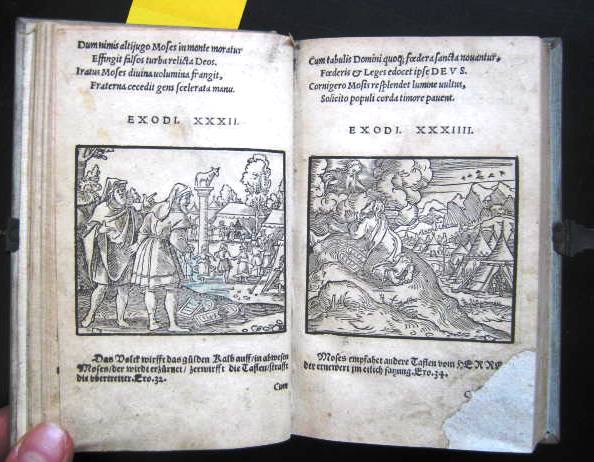 Dum nimis altijugo Moses in monte moratur
Effingit falsos turba relicta Deos.
Iratus Moses diuina uolumina frangit,
Fraterna cecedit gens scelerata manu.
EXODI. XXXII.
Das Volck wirfft das gülden Kalb auff / in abwesen
Moses / der wirdt erzürnet / zerwirfft die Taflen / strafft
die vbertretter. Exo. 32.
Cum
Cum tabulis Domini quoq; fœdera sancta nouantur,
Fœderis & Leges edocet ipse DEVS.
Cornigero Mosis resplendet lumine uultus,
Solicito populi corda timore pauent.
EXODI. XXXIIII.
Moses empfahet andere Taflen vom
der ernewert im etlich satzung. Exo. 34.